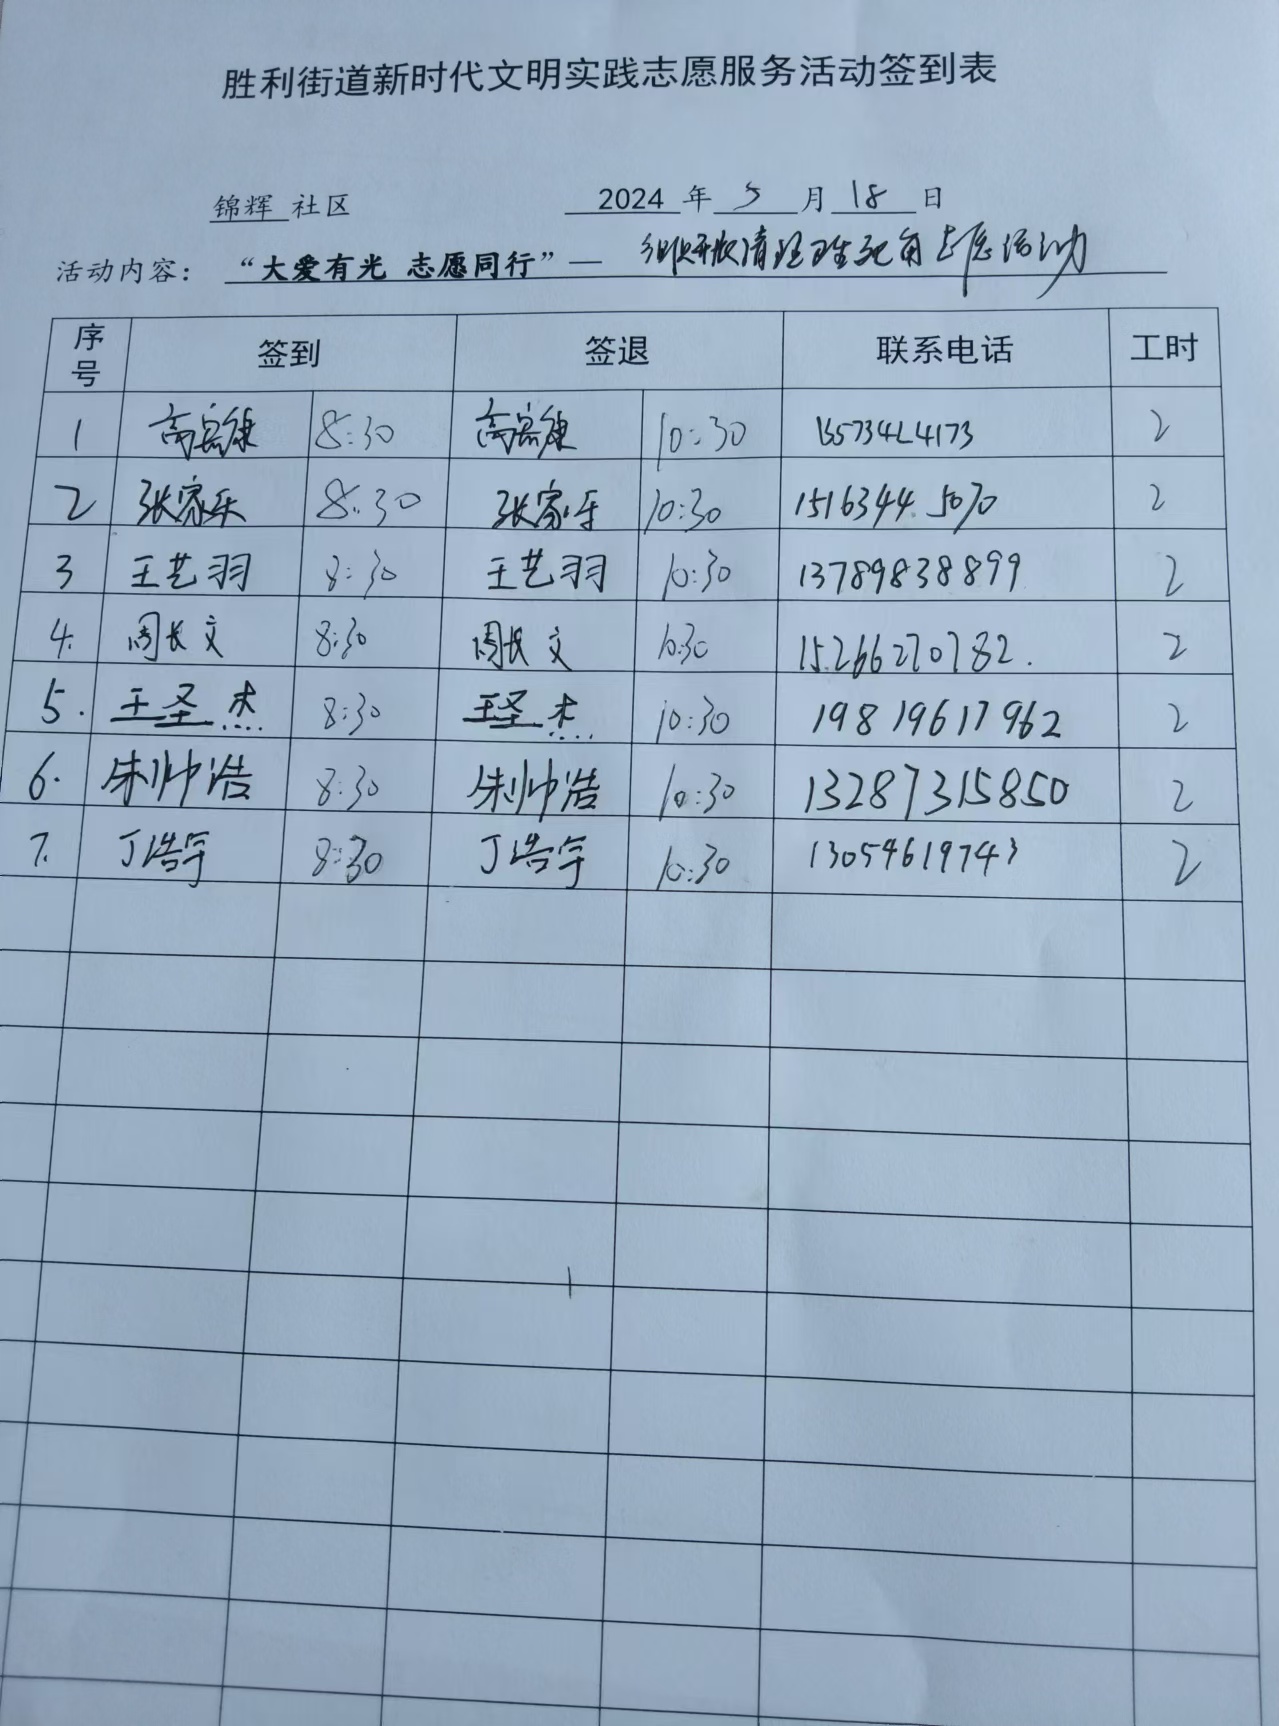 胜利街道新时代文明实践志愿服务活动签到表
锦辉 社区 2024 年 5 月 18 日
活动内容： “大爱有光 志愿同行”— 组织开展清理卫生死角志愿活动
序号 签到 签退 联系电话 工时
1 高 8:30 高 10:30 2
2 张家乐 8:30 张家乐 10:30 15163445070 2
3 王艺羽 8:30 王艺羽 10:30 13789838899 2
4. 周长文 8:30 周长文 10:30 15266270782. 2
5. 王圣杰 8:30 王圣杰 10:30 19819617962 2
6. 朱帅浩 8:30 朱帅浩 10:30 13287315850 2
7. 丁浩宇 8:30 丁浩宇 10:30 13054619743 2